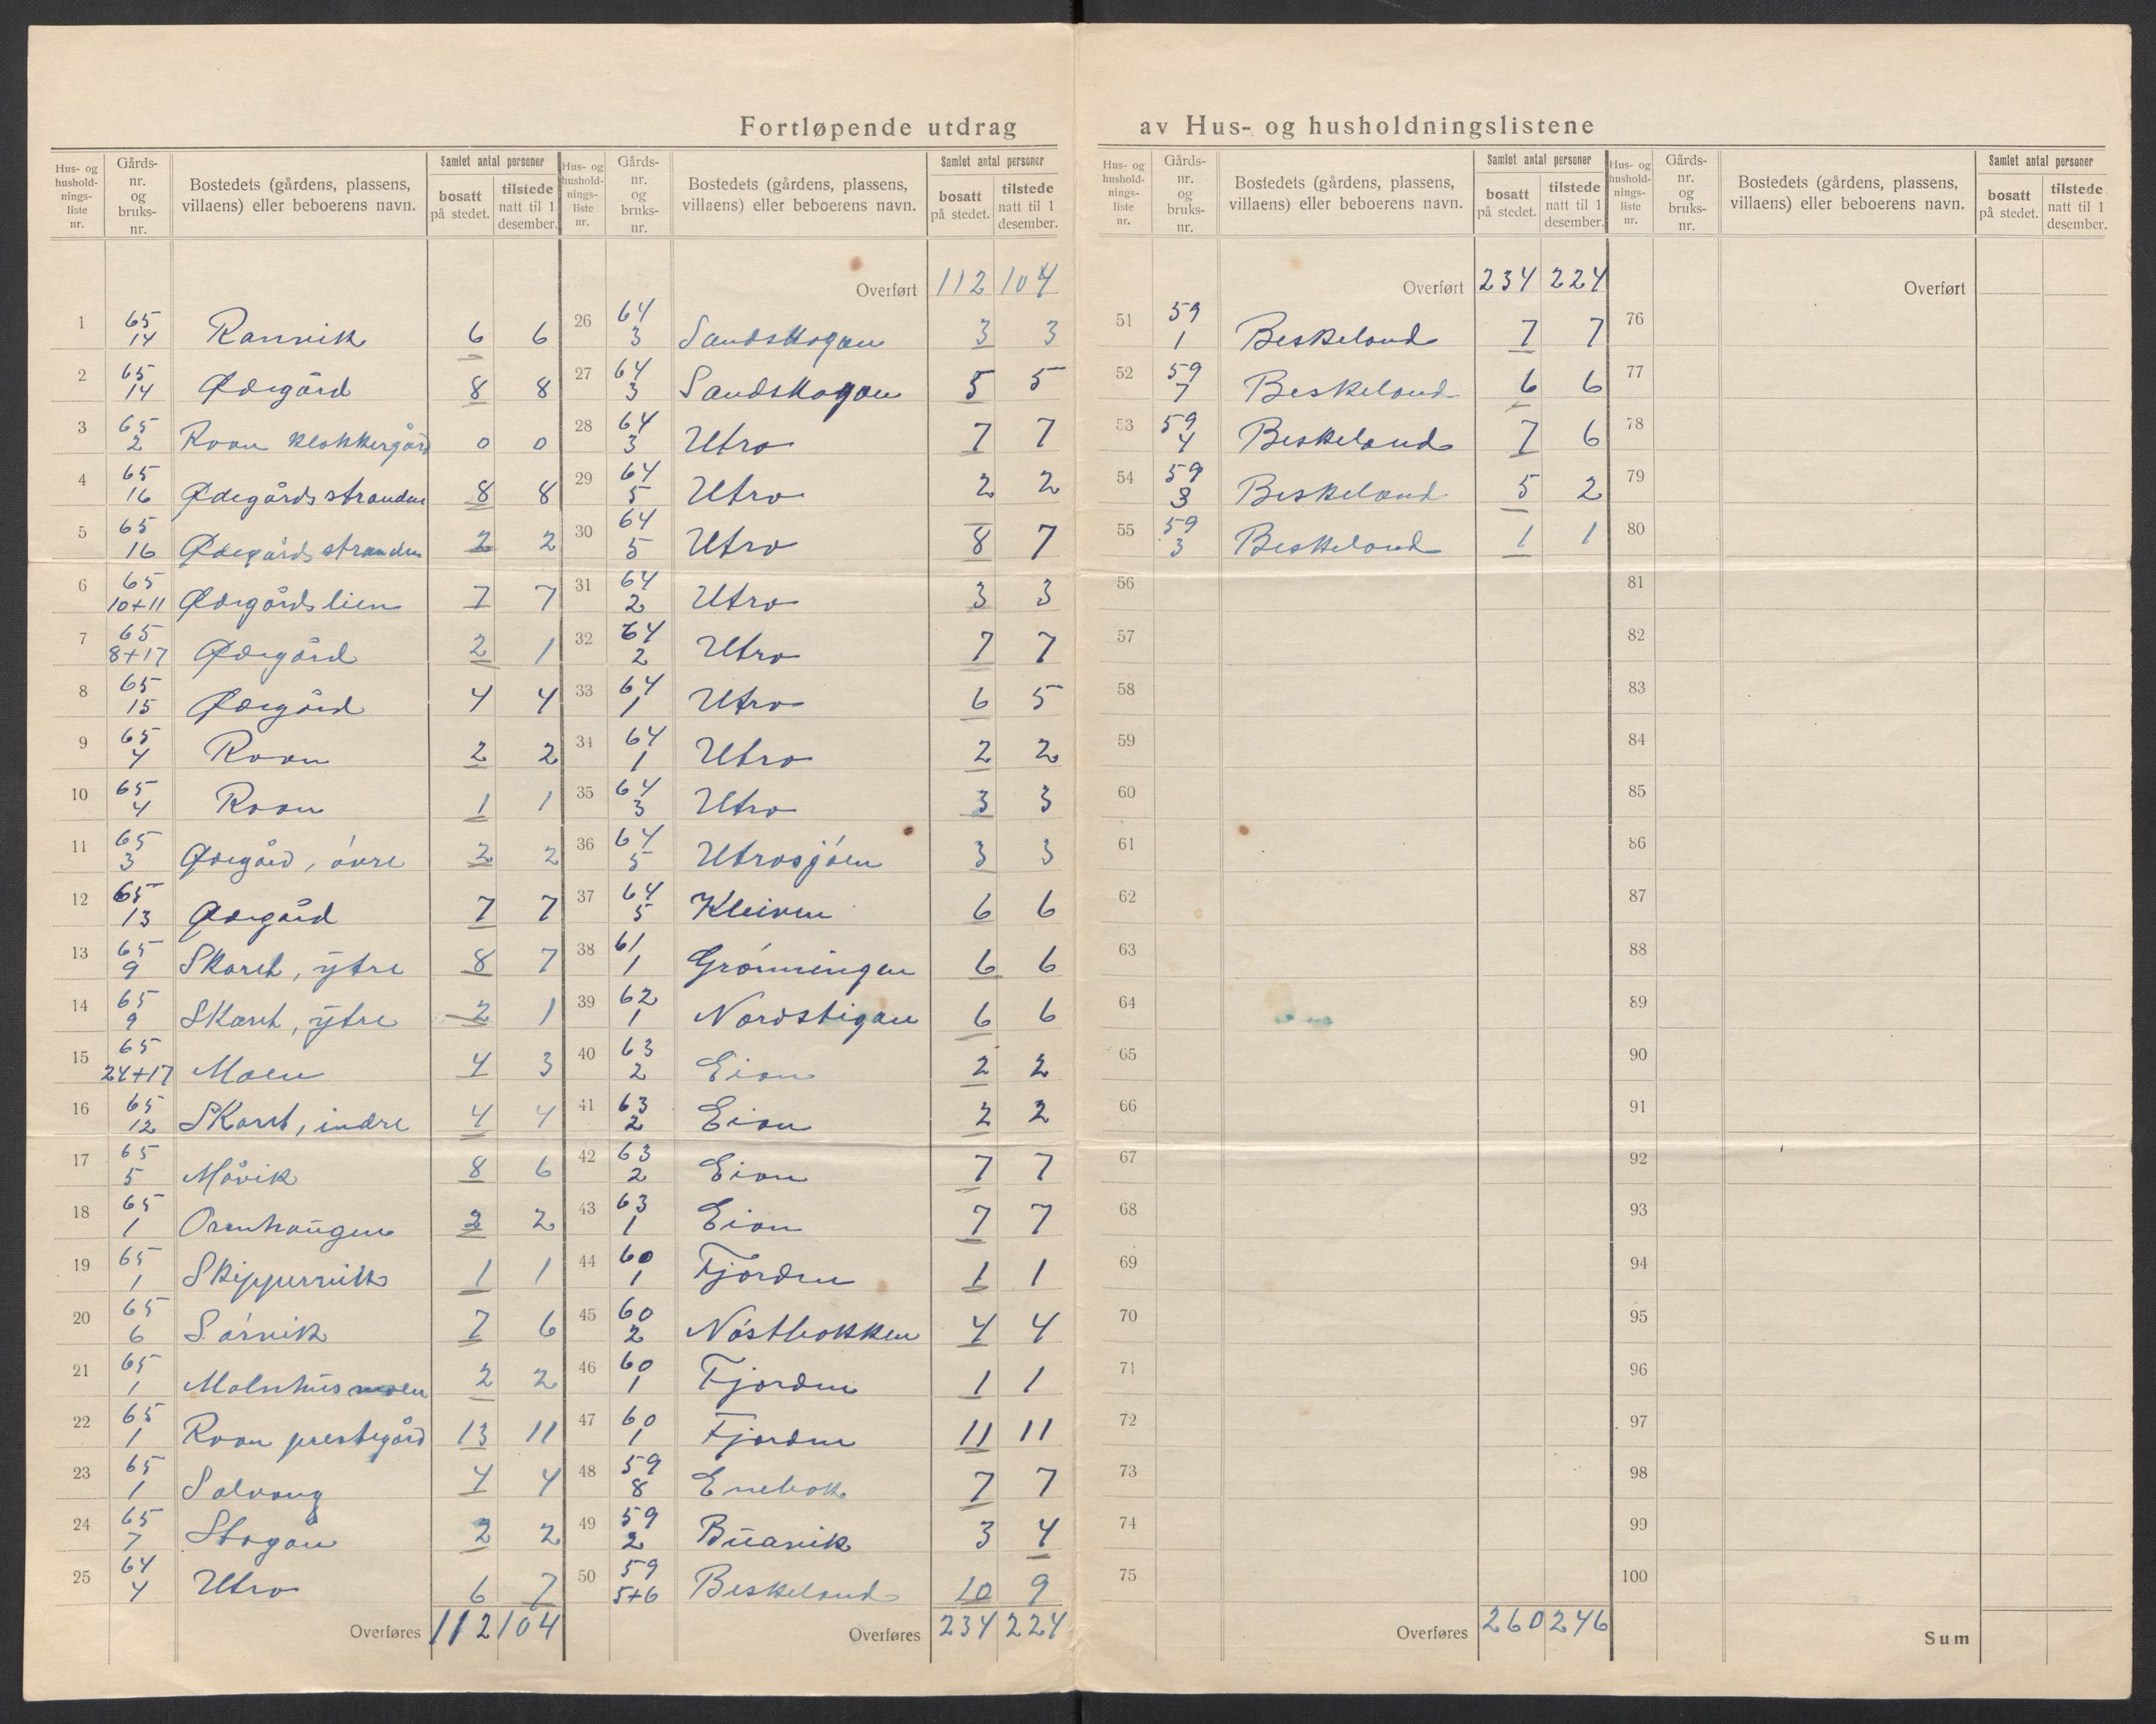 Fortløpende utdrag av Hus- og husholdningslistene
Hus- og husholdningsliste nr. | Gårds-nr. og bruks-nr. | Bostedets (gårdens, plassens, villaens) eller beboerens navn. | Samlet antal personer bosatt på stedet. | tilstede natt til 1 desember.
1 65/14 Ranvik 6 6
2 65/14 Ødegård 8 8
3 65/2 Roan klokkergård 0 0
4 65/16 Ødegårdsstranden 8 8
5 65/16 Ødegårdsstranden 2 2
6 65/10+11 Ødegårdslien 7 7
7 65/8+17 Ødegård 2 1
8 65/15 Ødegård 4 4
9 65/4 Roan 2 2
10 65/4 Roan 1 1
11 65/3 Ødegård, övre 2 2
12 65/13 Ødegård 7 7
13 65/9 Skaret, ytre 8 7
14 65/9 Skaret, ytre 2 1
15 65/24+17 Moen 4 3
16 65/12 Skaret, indre 4 4
17 65/5 Måvik 8 6
18 65/1 Orenhaugen 2 2
19 65/1 Skippervik 1 1
20 65/6 Sörvik 7 6
21 65/1 Malnhusmoen 2 2
22 65/1 Roan prestegård 13 11
23 65/1 Solvang 4 4
24 65/7 Stogan 2 2
25 64/4 Utro 6 7
Overføres 112 104
Hus- og husholdningsliste nr. | Gårds-nr. og bruks-nr. | Bostedets (gårdens, plassens, villaens) eller beboerens navn. | Samlet antal personer bosatt på stedet. | tilstede natt til 1 desember.
Overført 112 104
26 64/3 Sandskogan 3 3
27 64/3 Sandskogan 5 5
28 64/3 Utro 7 7
29 64/5 Utro 2 2
30 64/5 Utro 8 7
31 64/2 Utro 3 3
32 64/2 Utro 7 7
33 64/1 Utro 6 5
34 64/1 Utro 2 2
35 64/3 Utro 3 3
36 64/5 Utrosjöen 3 3
37 64/5 Kleiven 6 6
38 61/1 Grönningen 6 6
39 62/1 Nordstigan 6 6
40 63/2 Eian 2 2
41 63/2 Eian 2 2
42 63/2 Eian 7 7
43 63/1 Eian 7 7
44 60/1 Fjorden 1 1
45 60/2 Nöstbakken 4 4
46 60/1 Fjorden 1 1
47 60/1 Fjorden 11 11
48 59/8 Enebak 7 7
49 59/2 Buarvik 3 4
50 59/5+6 Beskeland 10 9
Overføres 234 224
Hus- og husholdningsliste nr. | Gårds-nr. og bruks-nr. | Bostedets (gårdens, plassens, villaens) eller beboerens navn. | Samlet antal personer bosatt på stedet. | tilstede natt til 1 desember.
Overført 234 224
51 59/1 Beskeland 7 7
52 59/7 Beskeland 6 6
53 59/4 Beskeland 7 6
54 59/3 Beskeland 5 2
55 59/3 Beskeland 1 1
56
57
58
59
60
61
62
63
64
65
66
67
68
69
70
71
72
73
74
75
Overføres 260 246
Hus- og husholdningsliste nr. | Gårds-nr. og bruks-nr. | Bostedets (gårdens, plassens, villaens) eller beboerens navn. | Samlet antal personer bosatt på stedet. | tilstede natt til 1 desember.
Overført
76
77
78
79
80
81
82
83
84
85
86
87
88
89
90
91
92
93
94
95
96
97
98
99
100
Sum